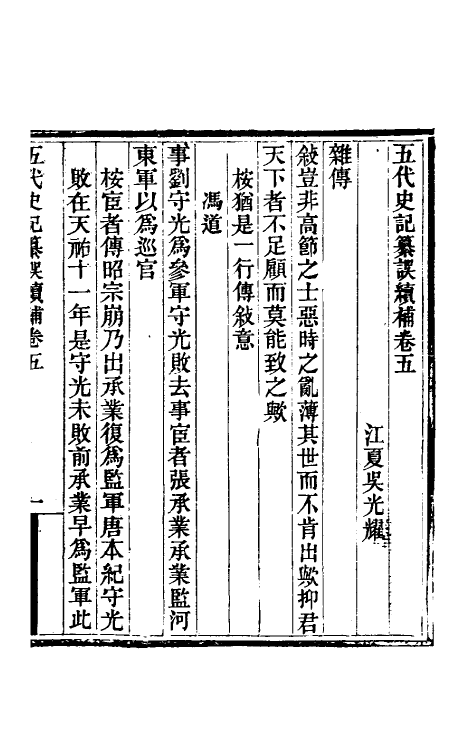 五代史記纂誤續補卷五
江夏吳光耀
雜傳
敘豈非高節之士惡時之亂薄其世而不肯出歟抑君
天下者不足顧而莫能致之歟
桉猶是一行傳敘意
馮道
事劉守光爲參軍守光敗去事宦者張承業承業監河
東軍以爲巡官
桉宦者傳昭宗崩乃出承業復爲監軍唐本紀守光
敗在天祐十一年是守光未敗前承業早爲監軍此
五代史記纂誤續補卷五
一